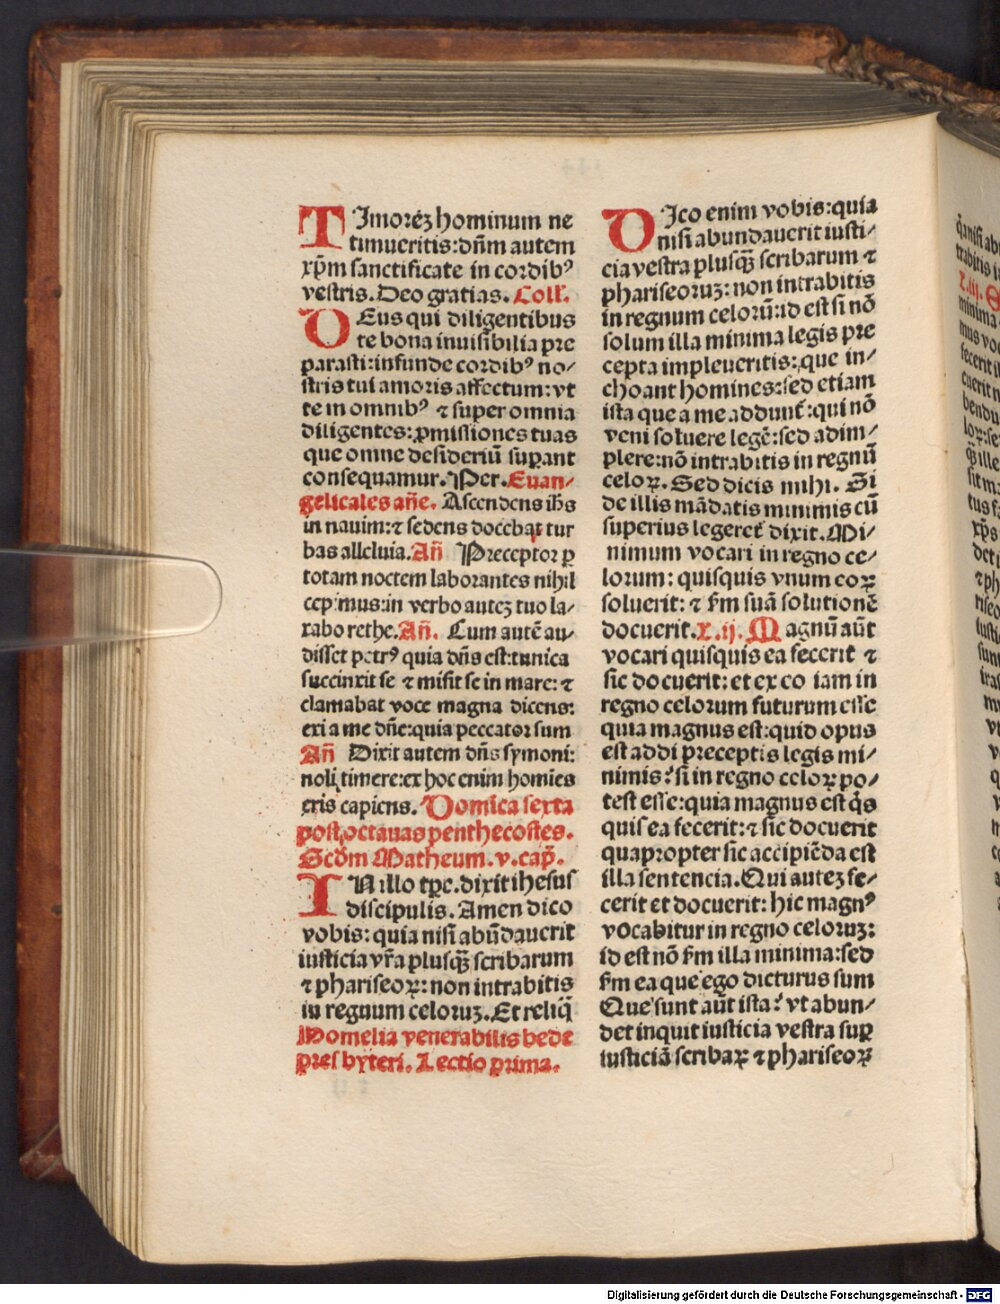 TImorē hominum ne
timueritis:dn̄m autem
xp̄m sanctificate in cordibꝰ
vestris.Deo gratias. Coll'.
DEus qui diligentibus
te bona inuisibilia pre
parasti:infunde cordibꝰ no/
stris tui amoris affectum:vt
te in omnibꝰ ⁊ super omnia
diligentes:ꝓmissiones tuas
que omne desideriū suꝑant
consequamur.Per.Euan-
gelicales añe. Ascendens ihs
in nauim:⁊ sedens docebat tur
bas alleluia.Añ Preceptor ꝑ
totam noctem laborantes nihil
cepimus:in verbo auteꝫ tuo la/
xabo rethe.Añ. Cum autē au/
disset petrꝰ quia dn̄s est:tunica
succinxit se ⁊ misit se in mare: ⁊
clamabat voce magna dicens:
exi a me dn̄e:quia peccator sum
Añ Dixit autem dn̄s symoni:
noli timere:ex hoc enim homies
eris capiens. Domīca sexta
post octauas penthecostes.
Scd̄m Matheum.v.cap̄.
IN illo tꝑe.dixit ihesus
discipulis.Amen dico
vobis: quia nisi abūdauerit
iusticia vr̄a plusqꝫ scribarum
⁊ phariseoꝝ: non intrabitis
in regnum celoruꝫ.Et reliq̄
Homelia venerabilis bede
presbyteri.Lectio prima.
DIco enim vobis:quia
nisi abundauerit iusti/
cia vestra plusqꝫ scribarum ⁊
phariseoruꝫ: non intrabitis
in regnum celorū:id est si nō
solum illa minima legis pre
cepta impleueritis: que in/
choant homines:sed etiam
ista que a me addunt̄:qui nō
veni soluere legē:sed adim/
plere:nō intrabitis in regnū
celoꝝ. Sed dicis mihi. Si
de illis mādatis minimis cū
superius legeret̄ dixit.Mi-
nimum vocari in regno ce/
lorum: quisquis vnum eoꝝ
soluerit: ⁊ fm suā solutionē
docuerit.L.ij. Magnū aūt
vocari quisquis ea fecerit ⁊
sic docuerit: et ex eo iam in
regno celorum futurum esse
quia magnus est:quid opus
est addi preceptis legis mi/
nimis: si in regno celoꝝ po/
test esse:quia magnus est q̇s
quis ea fecerit:⁊ sic docuerit
quapropter sic accipiēda est
illa sentencia.Qui auteꝫ fe-
cerit et docuerit: hic magnꝰ
vocabitur in regno celoruꝫ:
id est nō fm illa minima:sed
fm ea que ego dicturus sum
Que sunt aūt ista: vt abun/
det inquit iusticia vestra suꝑ
iusticiā scribaꝝ ⁊ phariseoꝝ
Digitalisierung gefördert durch die Deutsche Forschungsgemeinschaft - DFG